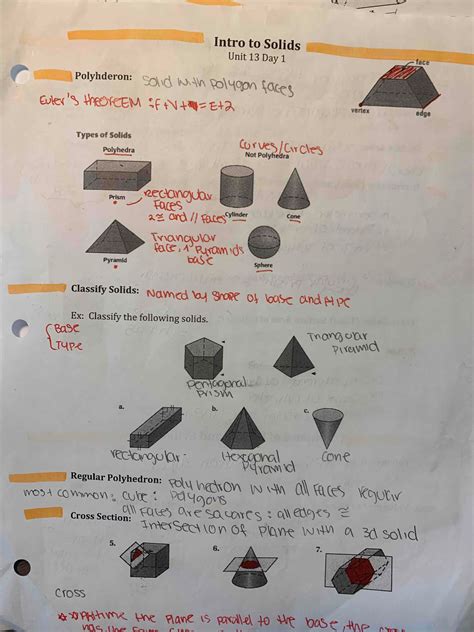 Intro to Solids
Unit 13 Day 1
face
Polyhderon: Solid with polygon faces
Euler's theorEEM: F+V=E+2
vertex
edge
Types of Solids
Polyhedra
Curves/Circles
Not Polyhedra
Prism
rectangular
Faces
2 ≅ and // Faces
Cylinder
Cone
Triangular
face, 1 Pyramid's
base
Pyramid
Sphere
Classify Solids: Named by shape of base and type
Ex: Classify the following solids.
Base
Type
Triangular
Piramid
Pentagonal
Prism
a.
b.
c.
rectangular
Hexagonal
Pyramid
Cone
Regular Polyhedron: Polyhedron with all faces regular
most common: cube: Polygons
all faces are squares: all edges ≅
Cross Section: Intersection of plane with a 3d solid
5.
6.
7.
Cross
the plane is parallel to the base, the